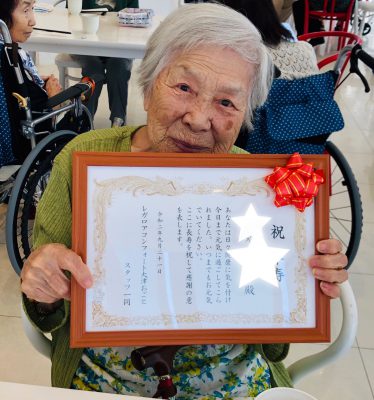 祝
寿
殿
あなたは日々健康に気を付け
今日まで元気に過ごしてこら
れました いつまでもお元気
でいてください。
ここに長寿を祝して感謝の意
を表します。
令和二年九月二十一日
レヴロアコンフォート大津おごと
スタッフ一同